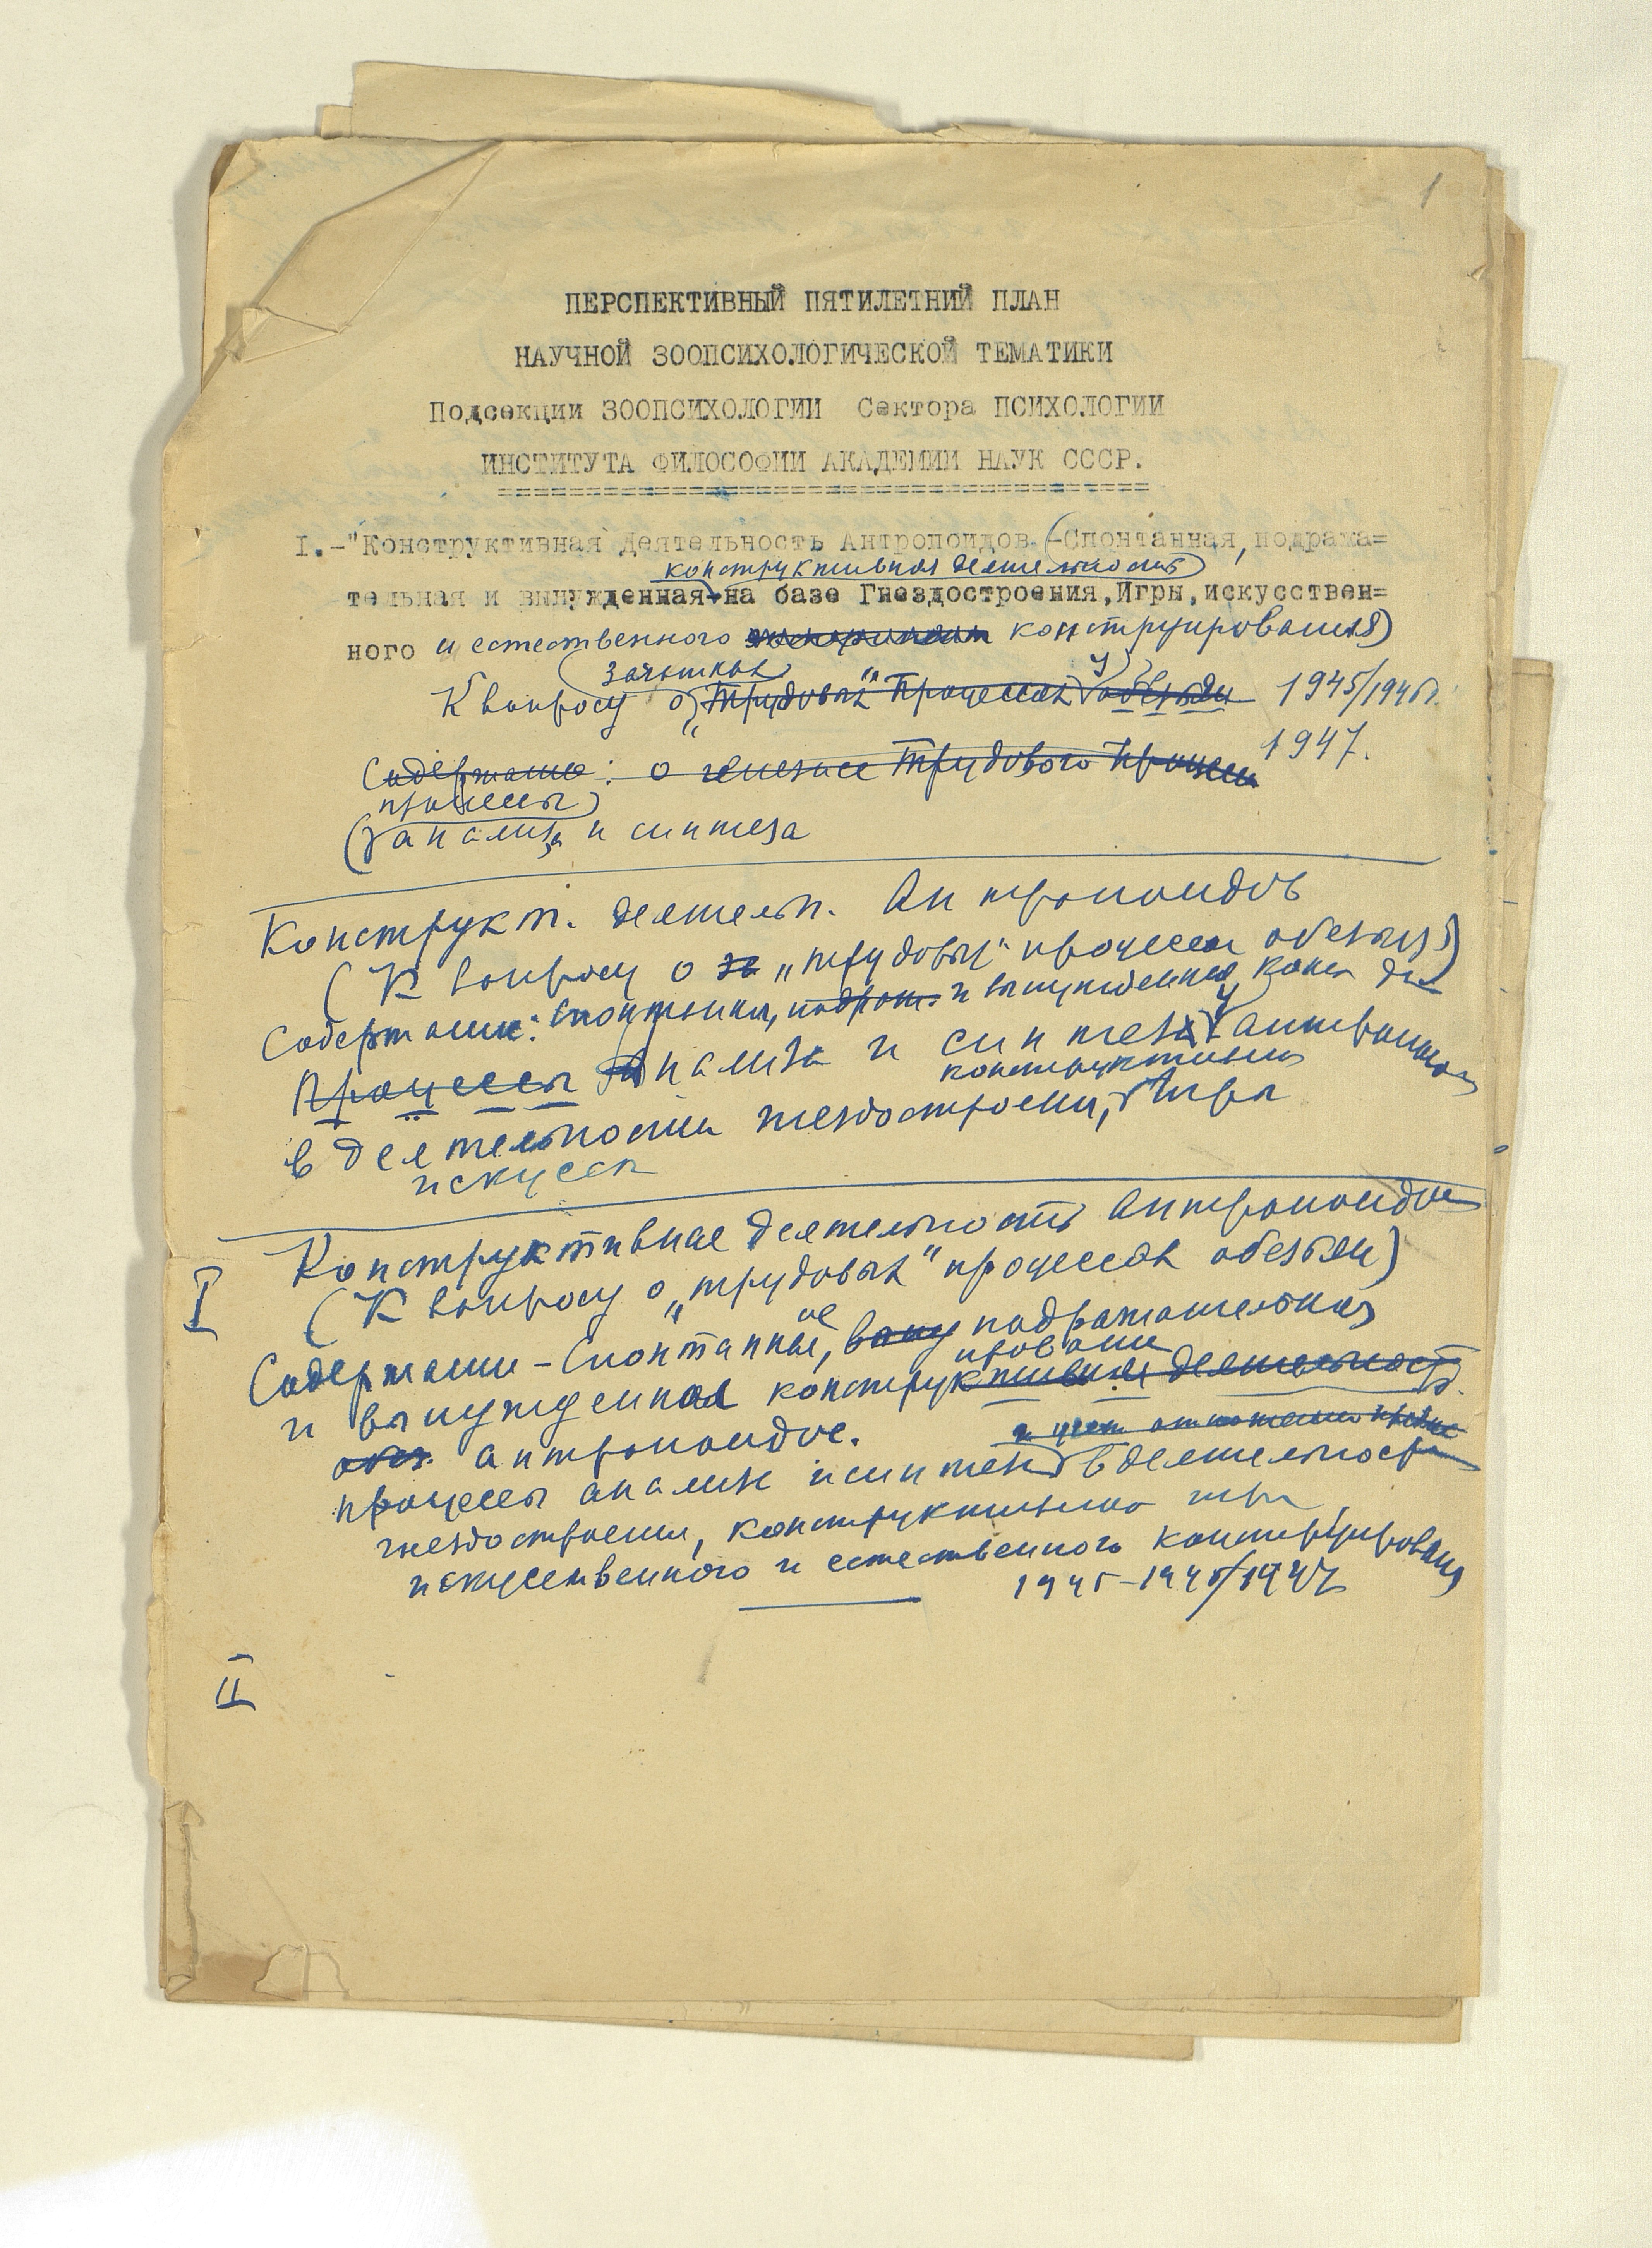 1
ПЕРСПЕКТИВНЫЙ ПЯТИЛЕТНИЙ ПЛАН
НАУЧНОЙ ЗООПСИХОЛОГИЧЕСКОЙ ТЕМАТИКИ
Подсекции ЗООПСИХОЛОГИИ Сектора ПСИХОЛОГИИ
ИНСТИТУТА ФИЛОСОФИИ АКАДЕМИИ НАУК СССР.
I.-"Конструктивная Деятельность Антропоидов (-Спонтанная, подража=
конструктивная деятельность
тельная и вынужденная на базе Гнездостроения, Игры, искусствен=
ного и естественного конструирования)
зачатках
К вопросу о „трудовых" процессах у обезьян 1945/1946г.
1947.
Содержание: о генезисе трудового процесса
процессы
(анализа и синтеза
Конструкт. деятельн. Антропоидов
(К вопросу о „трудовых" процессах обезьян)
Содержание: Спонтанная, подраж. и вынужденная конст. де
Процессы Анализа и синтеза у антропоидов
конструктивной
в деятельности гнездостроения, Игры
искусст
I Конструктивная деятельность Антропоидов
(К вопросу о „трудовых" процессах обезьян)
ое
Содержание - Спонтанные, подражательная
ирование
и вынужденная конструктивная деятельность
обез. антропоидов.
процессы анализа и синтеза в деятельности
гнездостроения, конструктивной игры,
искусственного и естественного конструирования
1945-1946/1947
II